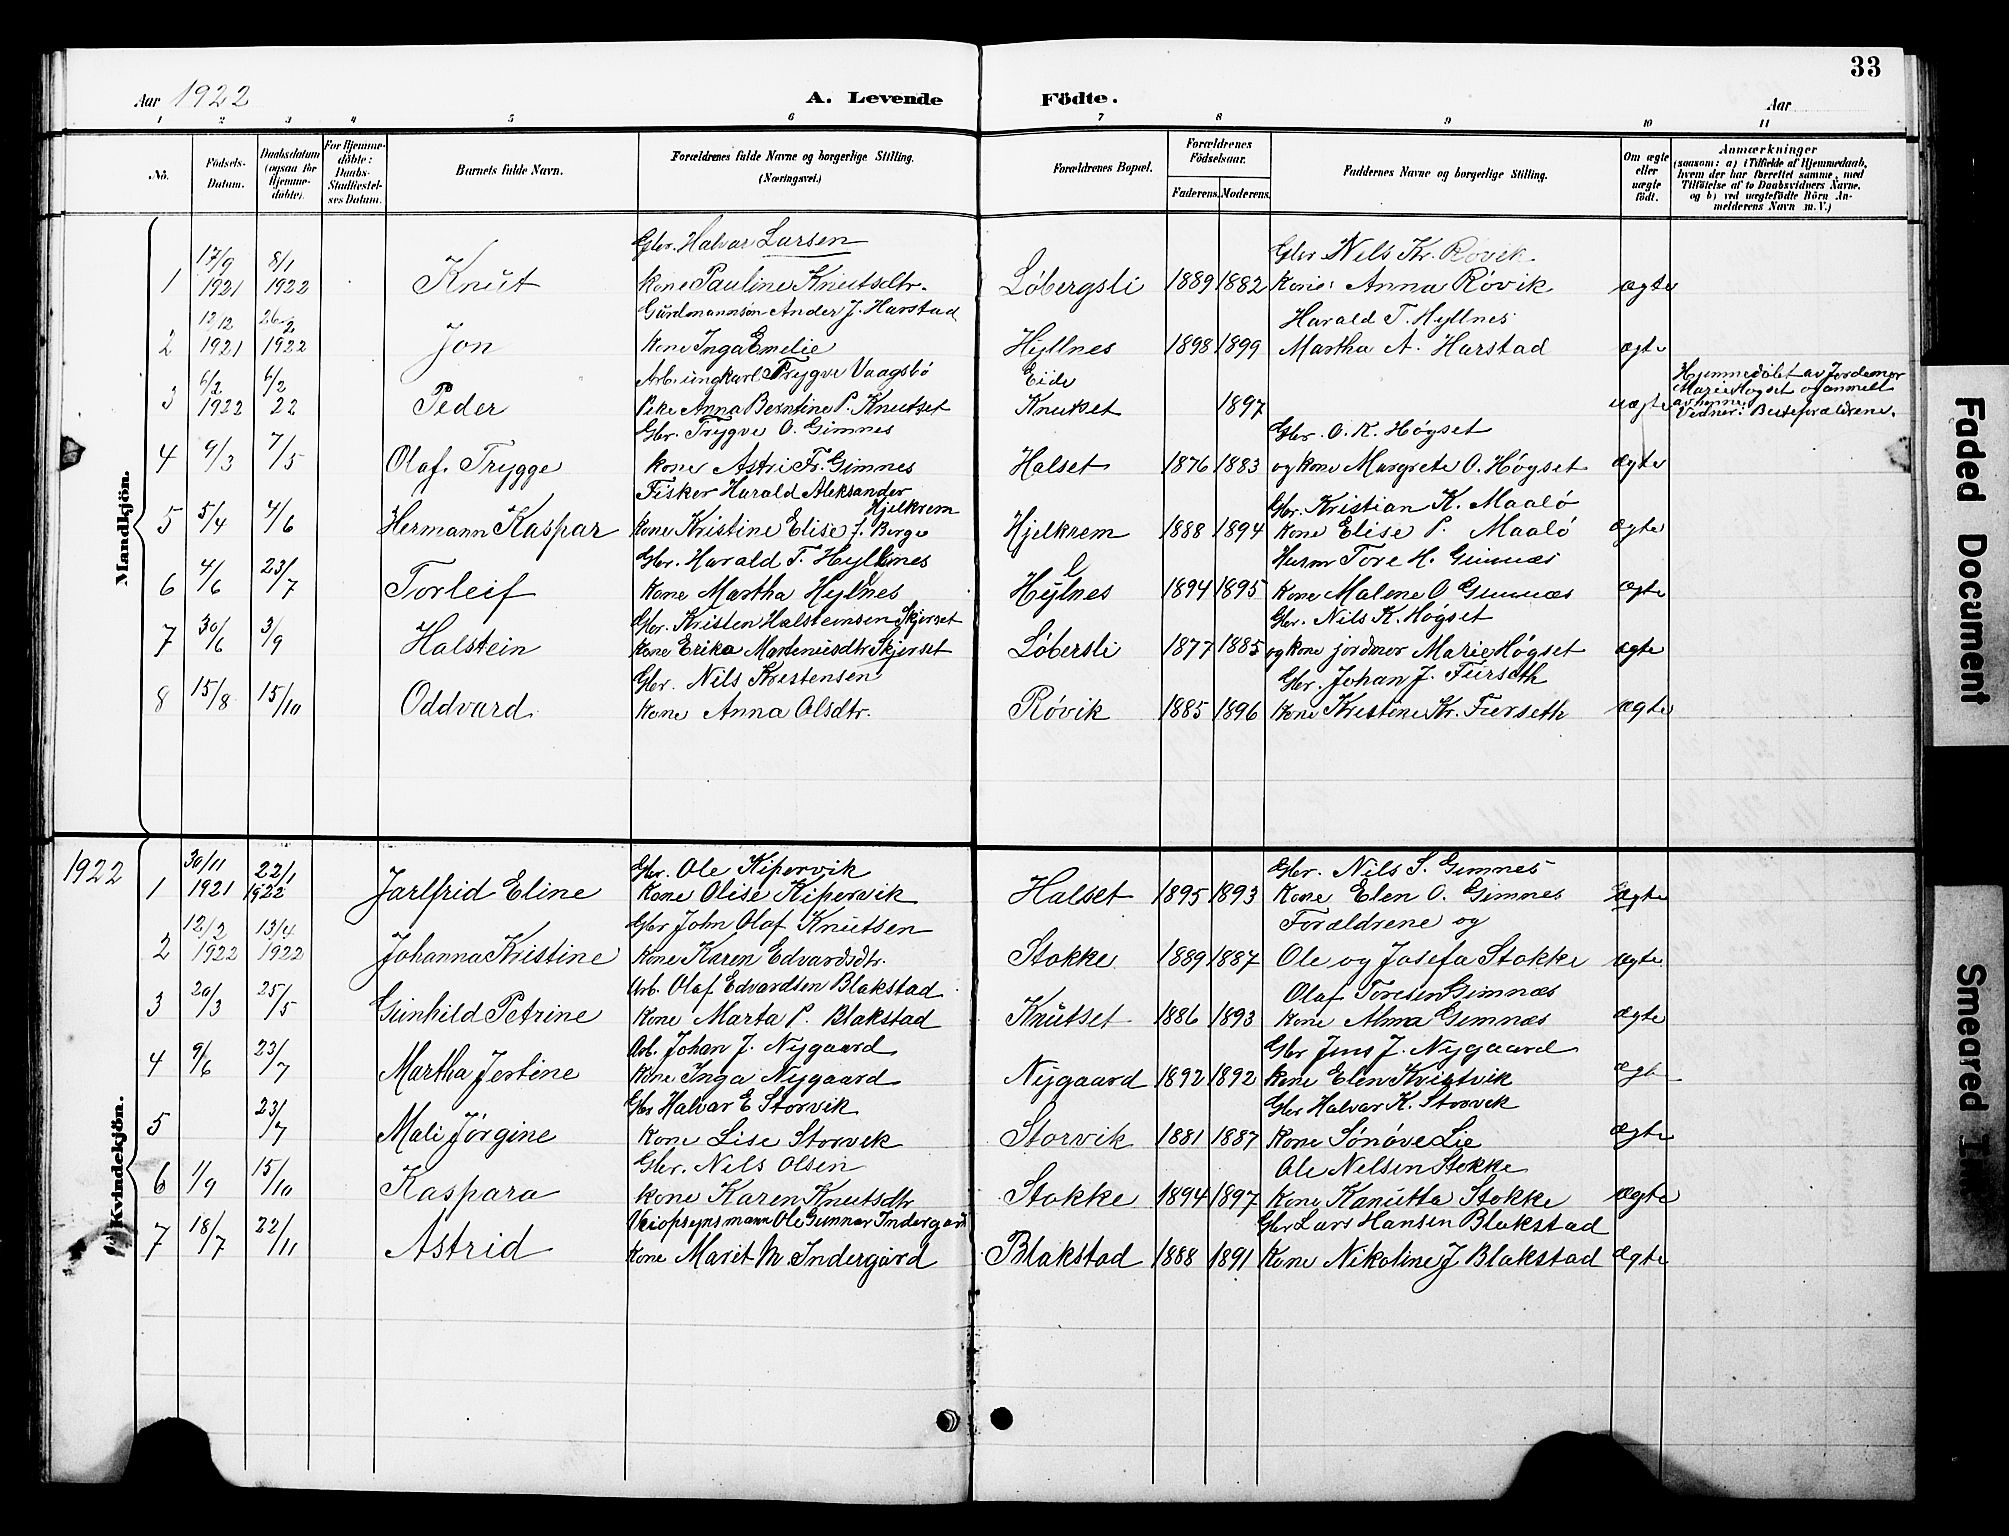 33
Aar 1922
A. Levende
Födte.
Aar
1 2 3 4 5 6 7 8 9 10 11
No.
Födsels-Datum.
Daabsdatum (ogsaa for Hjemmedøbte).
For Hjemmedöbte: Daabs-Stadfæstelses Datum.
Barnets fulde Navn.
Forældrenes fulde Navne og borgerlige Stilling. (Næringsvei.)
Forældrenes Bopæl.
Forældrenes Födselsaar.
Faderens. Moderens.
Faddernes Navne og borgerlige Stilling.
Om ægte eller uægte födt.
Anmærkninger
(saasom: a) i Tilfælde af Hjemmedaab, hvem der har forrettet samme, med Tilföielse af to Daabsvidners Navne, og b) ved uægtefödte Börn Anmelderens Navn m. V.)
Mandkjön.
Gbr. Halvar Larsen
Gbr Nils Kr. Røvik
1 17/9 1921 8/1 1922 Knut kone Pauline Knutsdtr. Løbergsli 1889 1882 kone Anna Røvik ægte
Gårdmannsön Ander J. Harstad
Harald T. Hyllnes
2 12/12 1921 26/2 1922 Jon kone Inga Emelie Hyllnes 1898 1899 Martha A. Harstad ægte
Arb. ungkarl Trygve Vaagsbö
Eide
Hjemmedöbt av Jordemor
Marie Høgset og anmelt
av henne.
3 6/2 1922 6/2 22 Peder Peke Anna Berntine P. Knutset Knutset 1897 uægte Vidner: Besteforældrene.
Gbr. Trygve O. Gimnes
Gbr. O. K. Høgset
4 9/3 7/5 Olaf Trygge kone Astri Fr. Gimnes Halset 1876 1883 og kone Margrete O. Høgset ægte
Fisker Harald Aleksander Hjelkrem
Gbr. Kristian K. Maalö
5 5/4 4/6 Hermann Kaspar kone Kristine Elise f. Berge Hjelkrem 1888 1894 kone Elise P. Maalö ægte
Gbr. Harald T. Hyllnes
Husm Tore H. Gimnæs
6 4/6 23/7 Torleif kone Martha Hyllnes Hyllnes 1894 1895 kone Malene O Gimnæs ægte
Gbr. Kristen Halsteinsen Skjerset
Gbr. Nils K. Høgset
7 30/6 3/9 Halstein kone Erika Marteniusdtr Skjerset Løbersli 1877 1885 og kone jordmor Marie Høgset ægte
Gbr. Nils Kristensen
Gbr. Johan J. Furseth
8 15/8 15/10 Oddvard kone Anna Olsdtr. Røvik 1885 1896 kone Kristine Kr. Furseth ægte
1922
Kvindekjön.
Gbr. Ole Kipervik
Gbr. Nils S. Gimnes
1 30/11 1921 22/1 1922 Jarlfrid Eline kone Olise Kipervik Halset 1895 1893 kone Elen O. Gimnes ægte
Gbr John Olaf Knutsen
Forældrene og
2 12/2 1922 13/4 1922 Johanna Kristine kone Karen Edvardsdtr. Stokke 1889 1887 Ole og Josefa Stokke ægte
Arb. Olaf Edvardsen Blakstad
Olaf Toresen Gimnæs
3 20/3 25/5 Gunhild Petrine kone Marta P. Blakstad Knutset 1886 1893 kone Alma Gimnæs ægte
Arb. Johan J. Nygaard
Gbr Jens J. Nygaard
4 9/6 23/7 Martha Jertine kone Inga Nygaard Nygaard 1892 1892 kone Elen Kvistvik ægte
Gbr Halvar E Storvik
Gbr Halvar K. Storvik
5 23/7 Mali Jørgine kone Lise Storvik Storvik 1881 1887 kone Sønøve Lie ægte
Gbr. Nils Olsen
Ole Nelsen Stokke
6 1/9 15/10 Kaspara kone Karen Knutsdtr Stokke 1894 1897 kone Kanutta Stokke ægte
Veiopsynsmann Ole Gunnar Indergård
Gbr Lars Hansen Blakstad
7 18/7 22/11 Astrid kone Marit M. Indergård Blakstad 1888 1891 kone Nikoline J Blakstad ægte
Faded Document
Smeared Ink